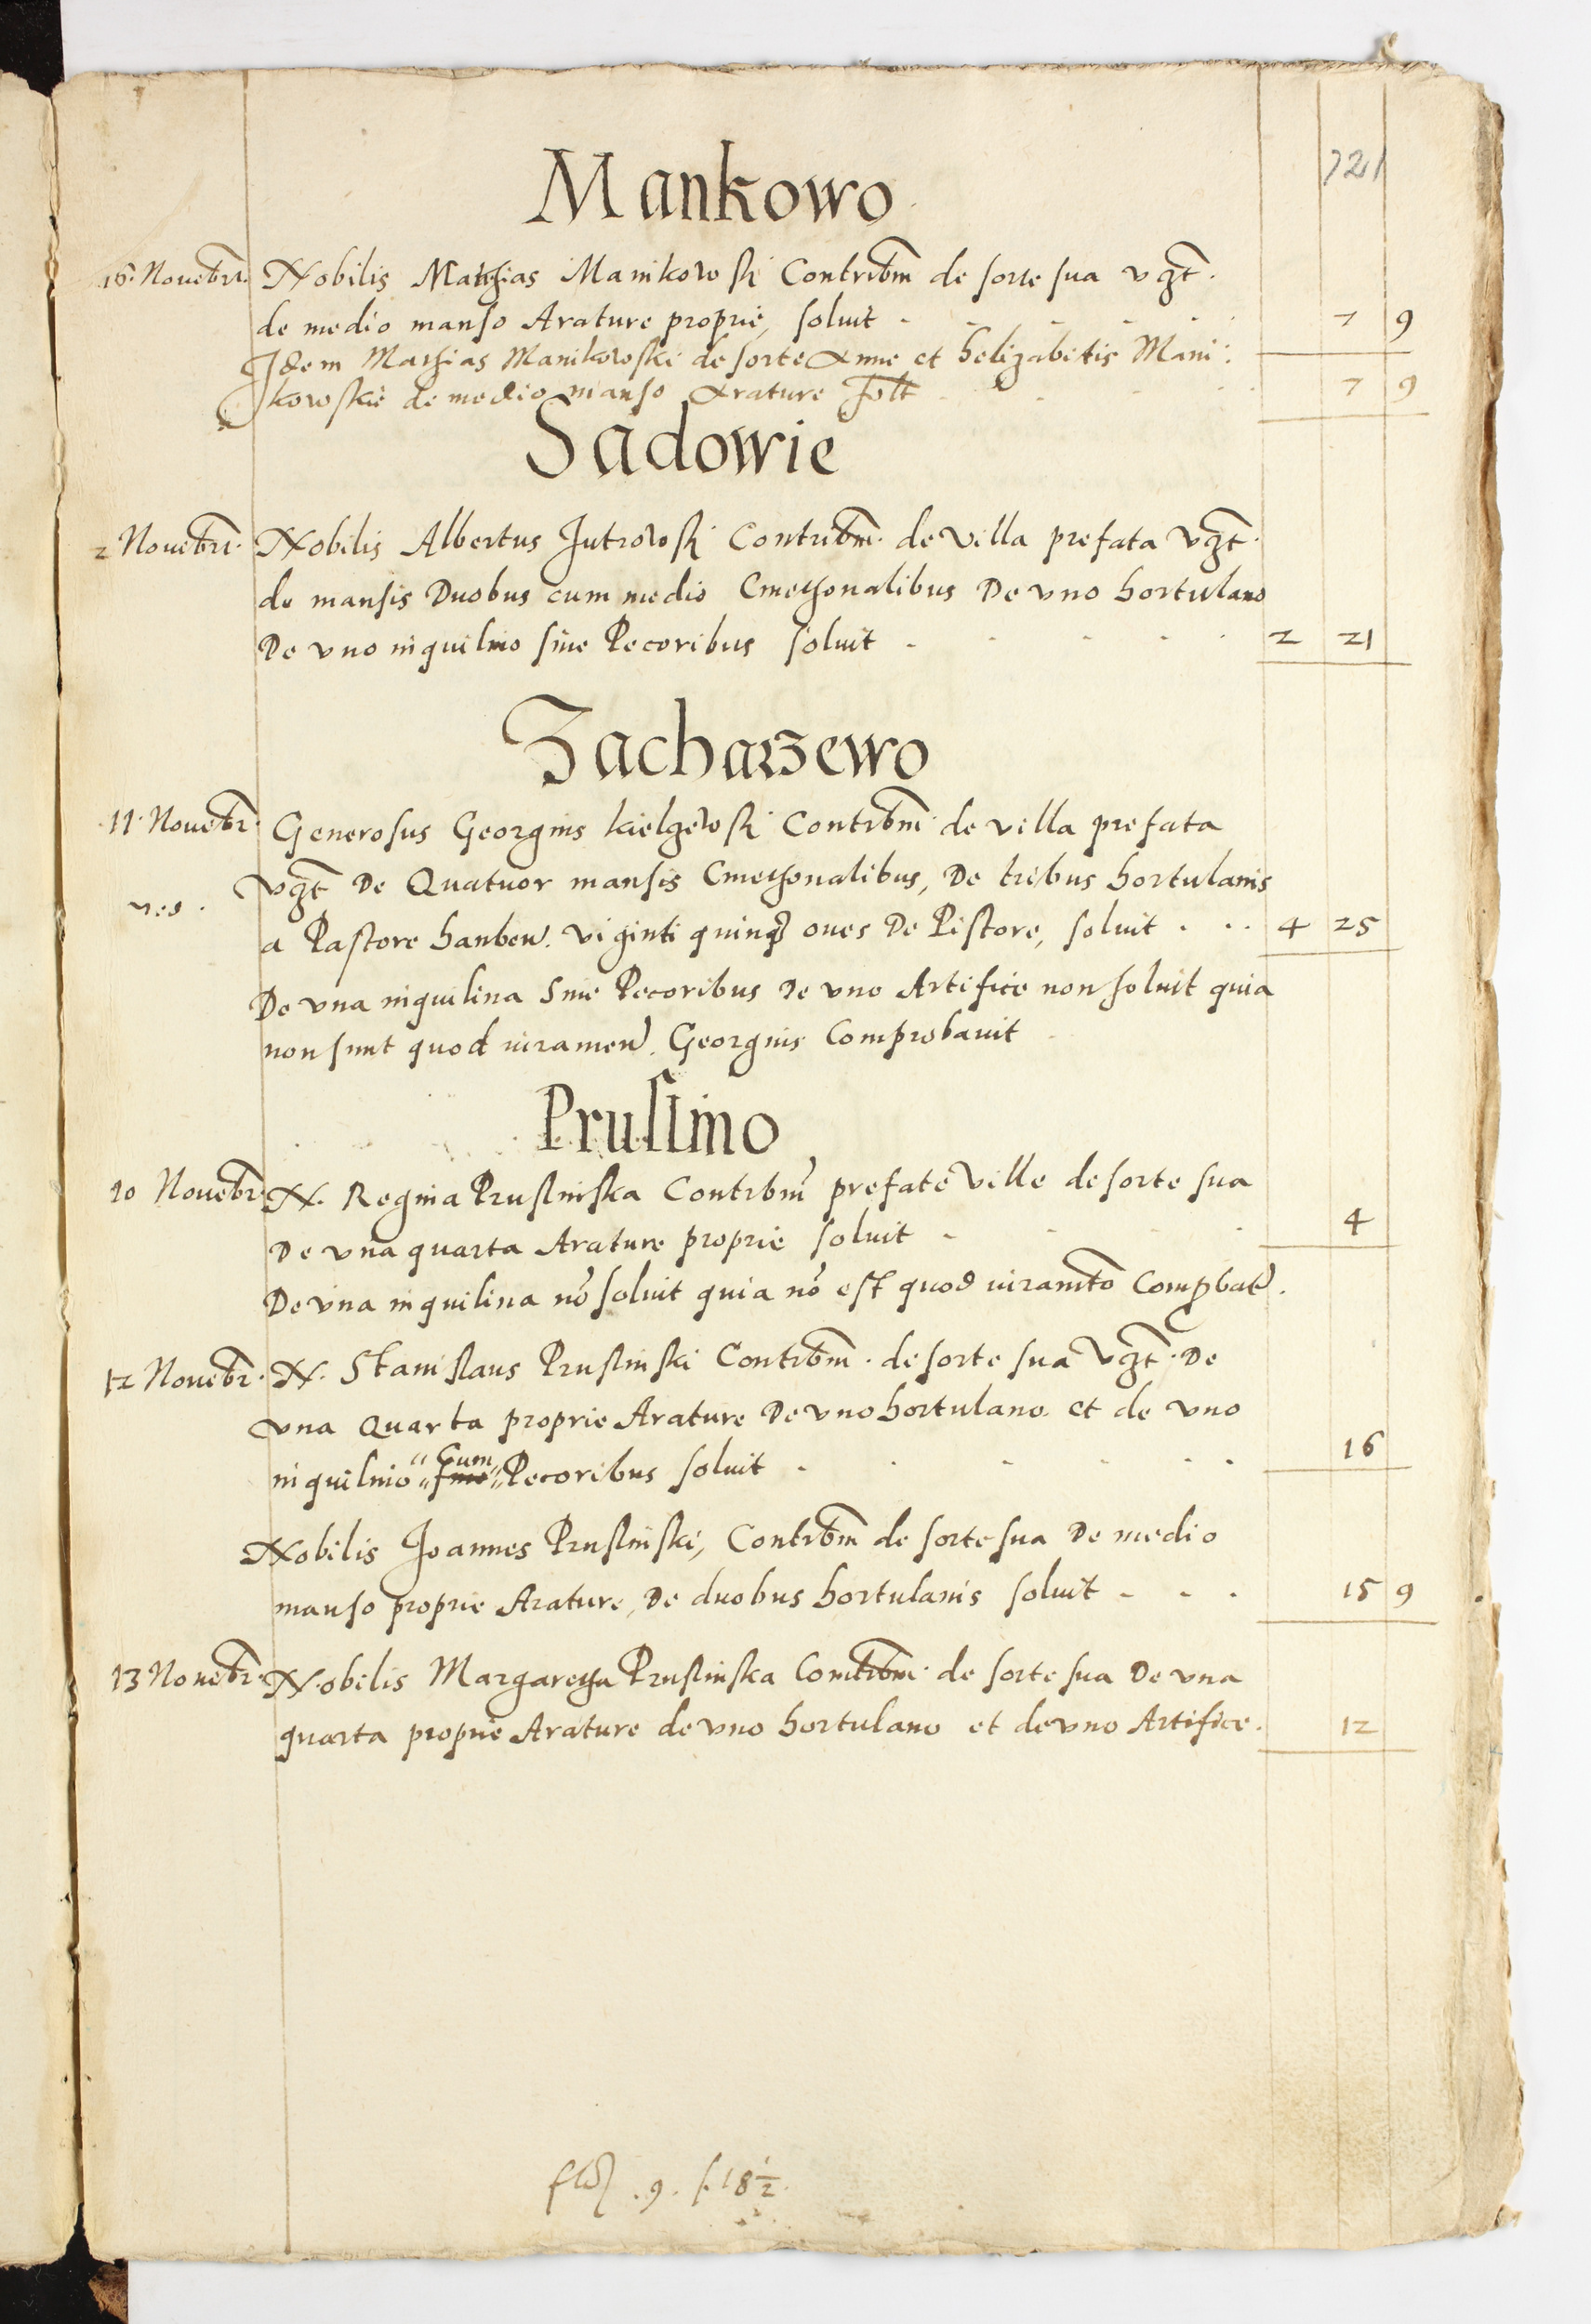 721
Mankowo
16 Novēbri. Nobilis Mathias Manikowski Contribm de sorte sua vzt.
de medio manso Arature proprie, soluit - 7 9
Idem Mathias Manikowski de sorte Anne et helizabetis Mani:
kowskie de medio manso Arature solt 7 9
Sadowie
2 Novēbri. Nobilis Albertus Jutrowski Contribm. de villa prefata vzt.
de mansis Duobus cum medio Cmethonalibus De vno hortulano
De vno inquilino sine Pecoribus soluit - 2 21
Zacharzewo
11 Novēbr. Generosus Georgius kielzewski Contrbm de villa prefata
vzt De Quatuor mansis Cmethonalibus, De tribus hortulanis
a Pastore hanben. viginti quinq oues De Pistore, soluit 4 25
De vna inquilina Sine Pecoribus de vno Artifice non soluit quia
non sunt quod iuramen. Georgius Comprobauit
Prussino
10 Novēbr. N. Regina Prusinska Contrbm prefate ville de sorte sua
De vna quarta Arature proprie soluit - 4
De vna inquilina nō soluit quia nō est quod iuramto Compbat.
12 Novēbr. N. Stanislaus Prusinski Contrbm. de sorte sua vzt. De
vna Quarta proprie Arature De vno hortulano et de vno
inquilino sine Cum Pecoribus soluit - 16
Nobilis Joannes Prusinski, Contrbm de sorte sua De medio
manso proprie Arature, De duobus hortulanis soluit - 15 9
13 Novēbr. Nobilis Margaretha Prusinska Contribm. de sorte sua De vna
quarta proprie Arature de vno hortulano et de vno Artifice. 12
flo .9. /.18½